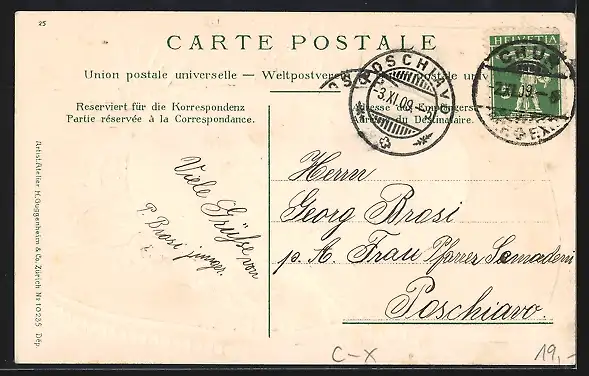 25
CARTE POSTALE
Union postale universelle — Weltpostverein postale univ
HELVETIA
POSCHIAVO
-3.XI.09.-
CHUR
-2.XI.09.-
Reserviert für die Korrespondenz
Partie réservée à la Correspondance.
Adresse des Empfängers
Adresse du Destinataire.
Viele Grüsse von
P. Brosi junger.
Herrn
Georg Brosi
p. A. Frau Pfarrer Semadeni
Poschiavo
Artist. Atelier H. Guggenheim & Co. Zürich No 10235 Dép.
C-X
19,-